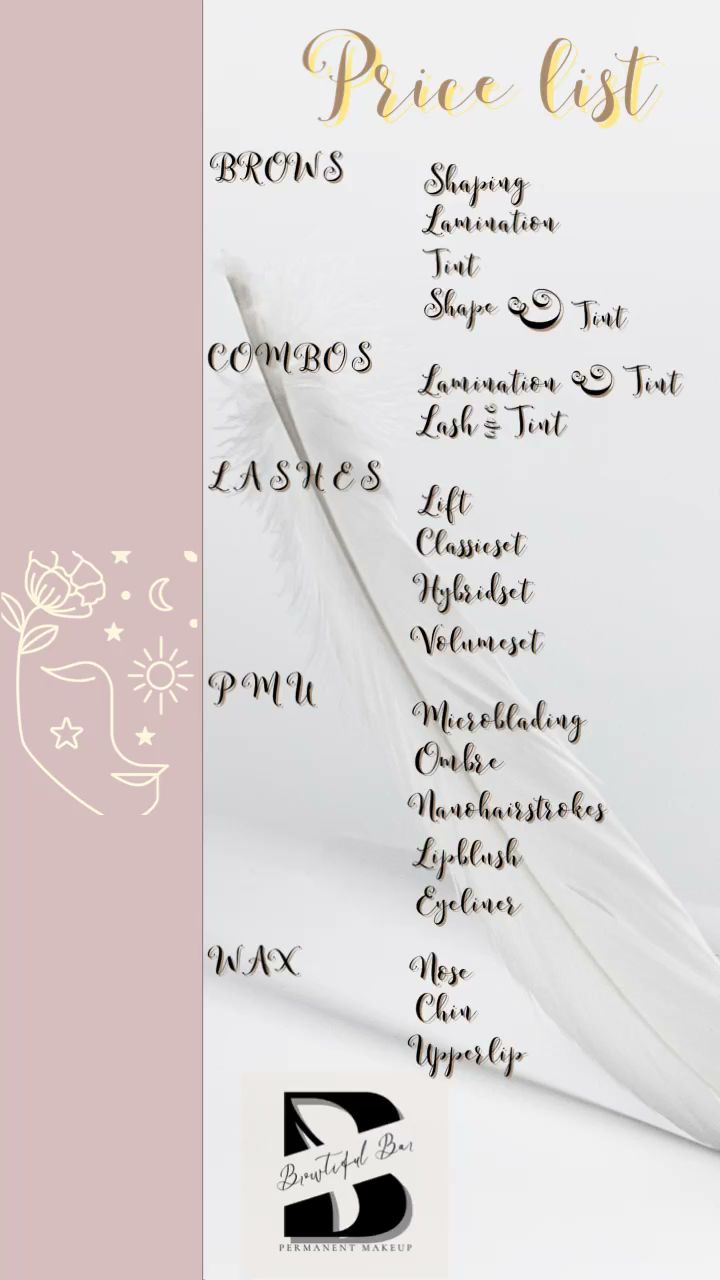 Price list
BROWS
Shaping
Lamination
Tint
Shape & Tint
COMBOS
Lamination & Tint
Lash & Tint
LASHES
Lift
Classicset
Hybridset
Volumeset
PMU
Microblading
Ombre
Nanohairstrokes
Lipblush
Eyeliner
WAX
Nose
Chin
Upperlip
B
Browtiful Bar
PERMANENT MAKEUP